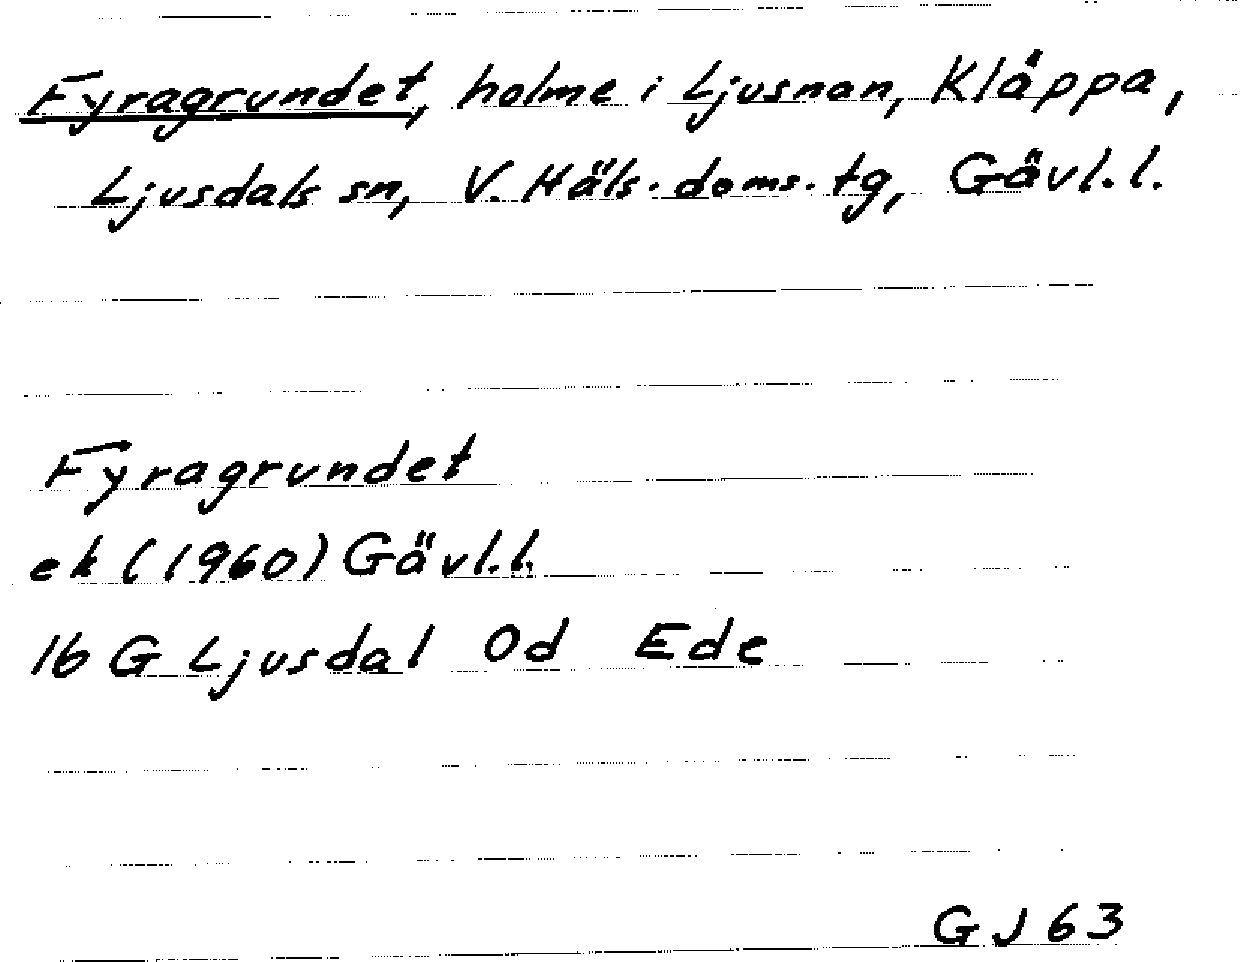 Fyragrundet, holme i Ljusnan, Kläppa,
Ljusdals sn, V. Häls. doms. tg, Gävl. l.
Fyragrundet
ek (1960) Gävl. l.
16 G Ljusdal 0d Ede
GJ 63